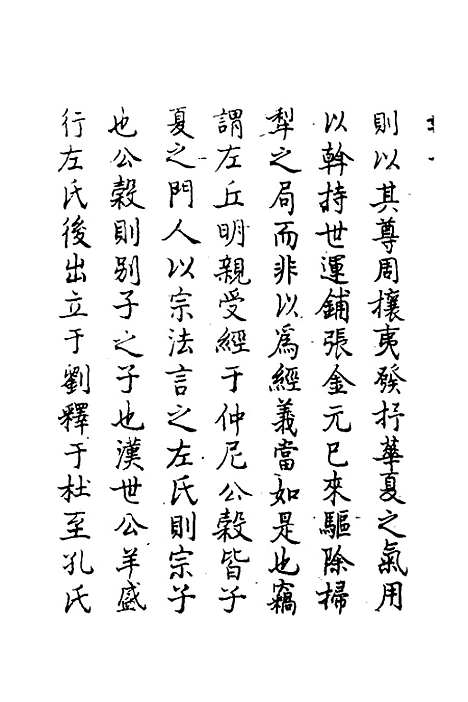 則以其尊周攘夷發抒華夏之氣用
以斡持世運鋪張金元已來驅除掃
犁之局而非以為經義當如是也竊
謂左丘明親受經于仲尼公穀皆子
夏之門人以宗法言之左氏則宗子
也公穀則别子之子也漢世公羊盛
行左氏後出立于劉釋于杜至孔氏